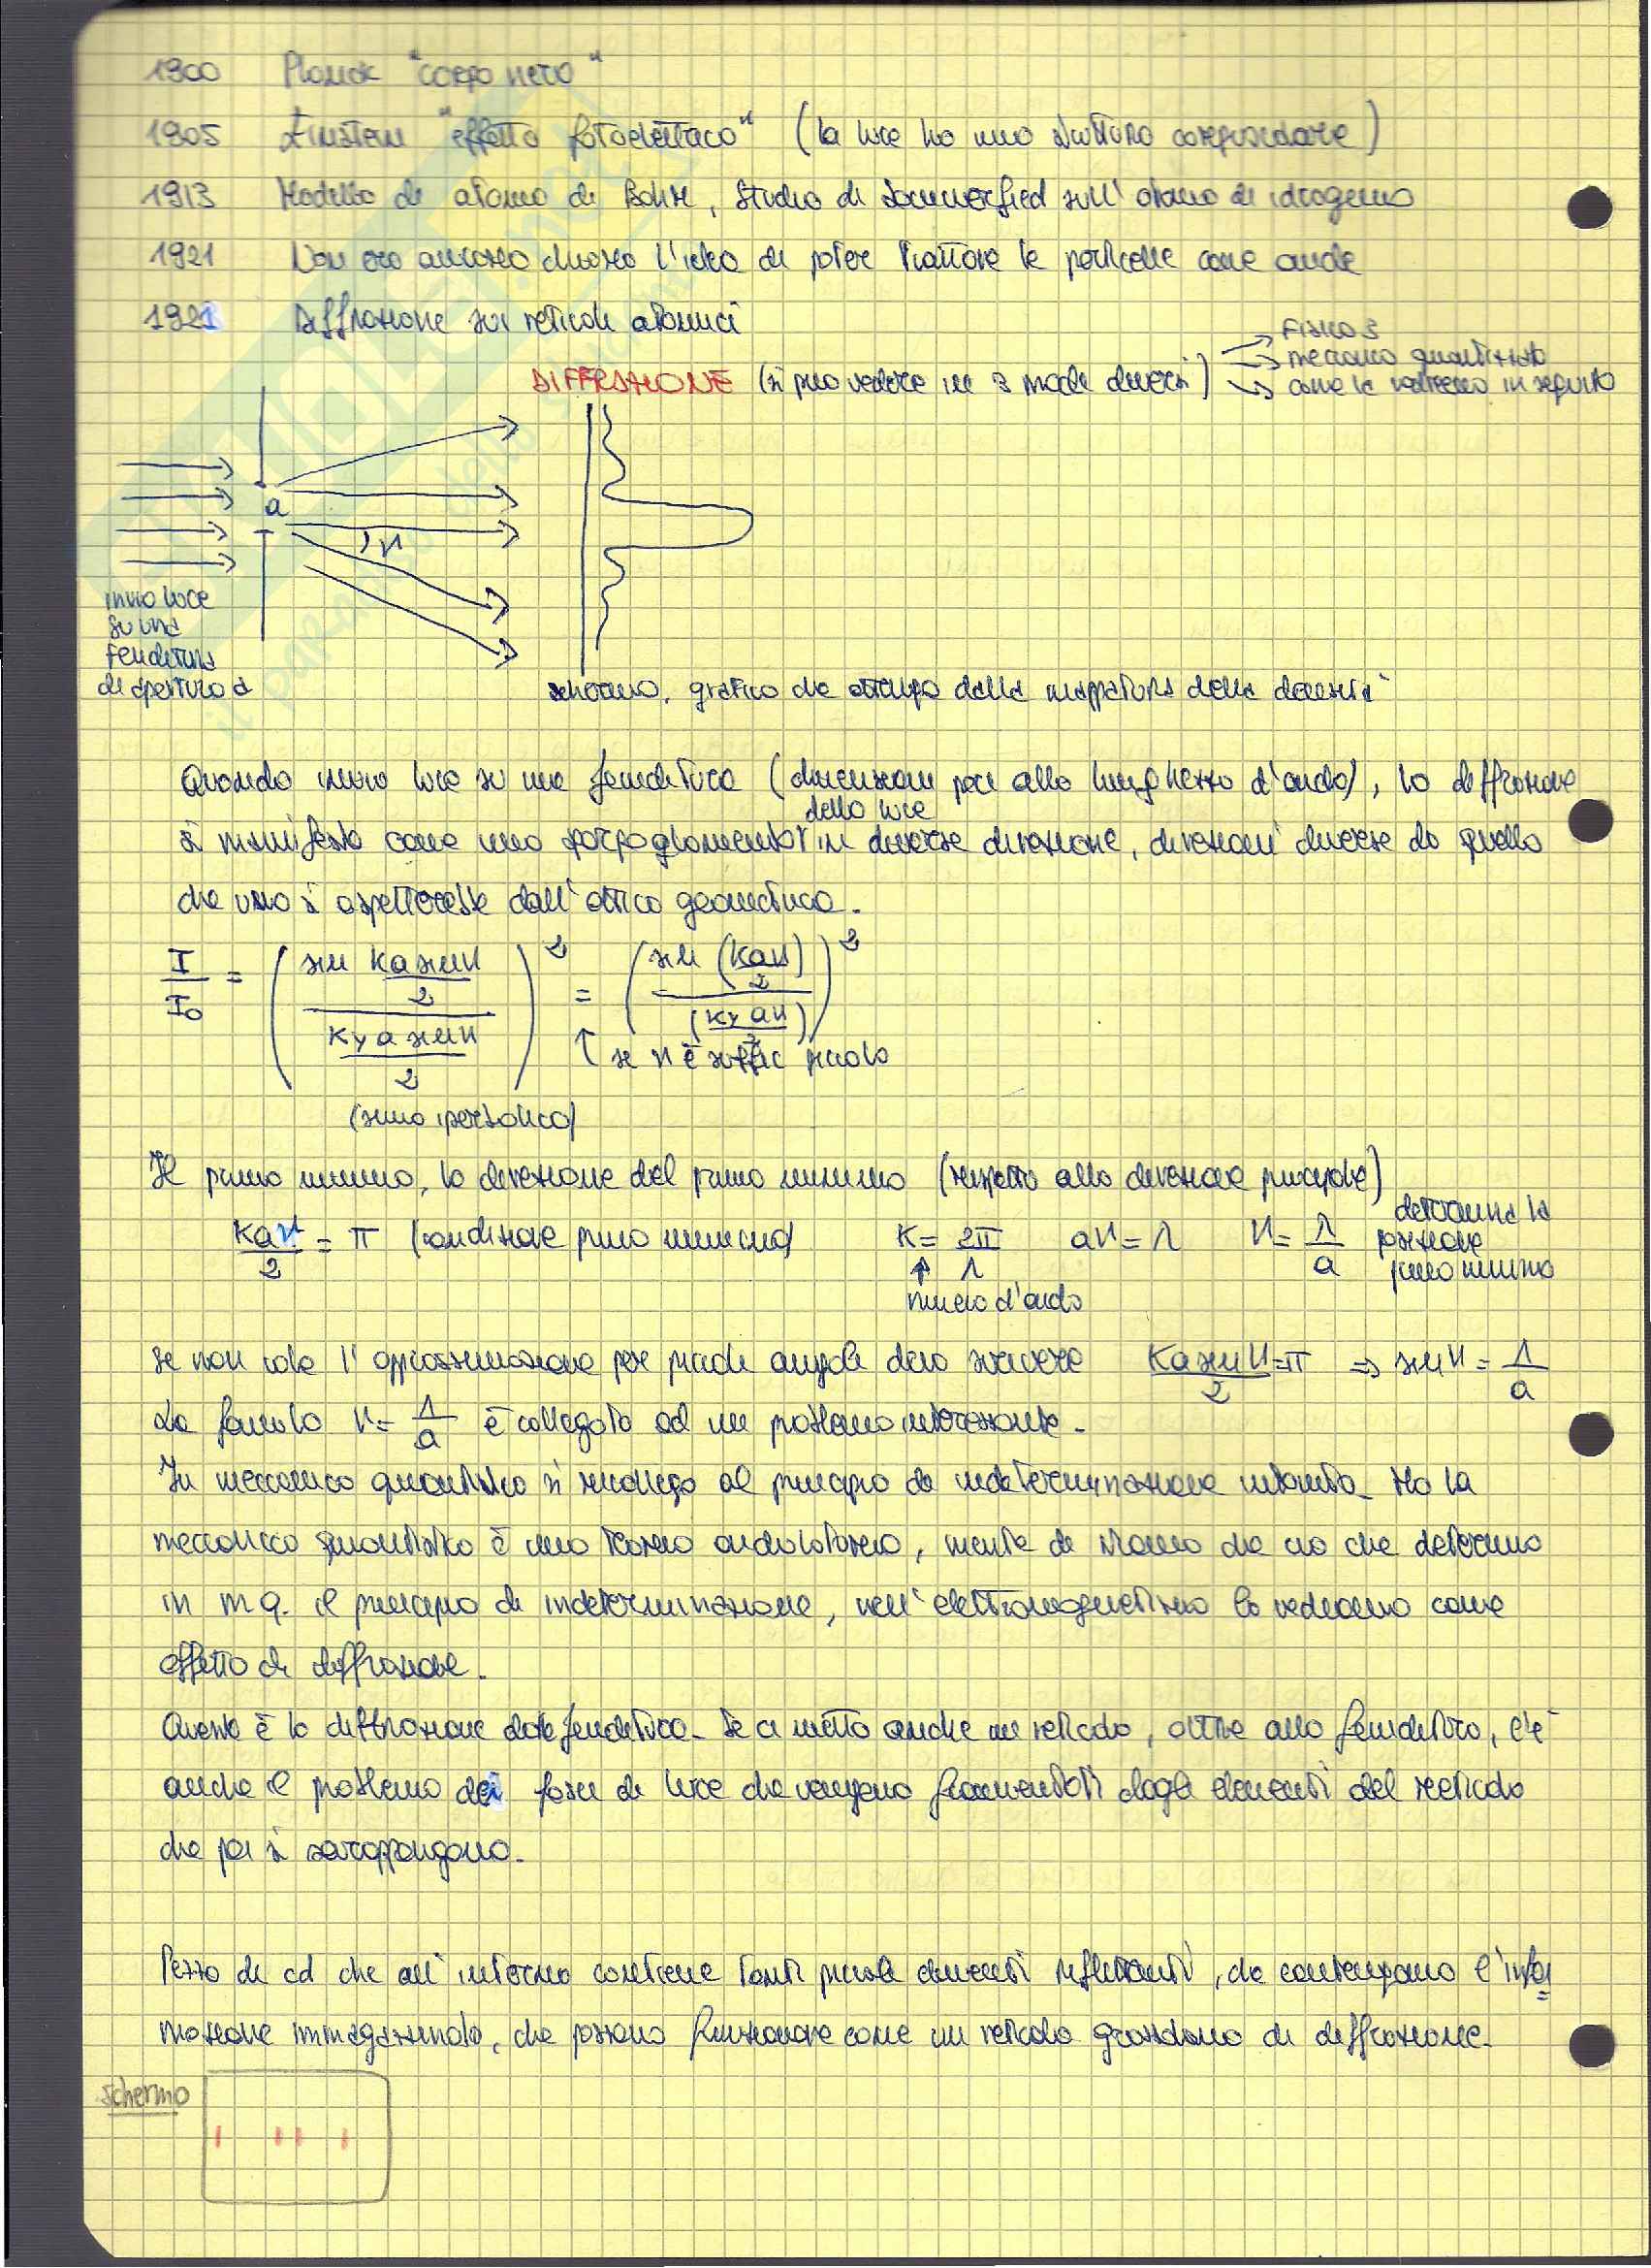 1900 Planck "corpo nero"
1905 Einstein "effetto fotoelettrico" (la luce ha una struttura corpuscolare)
1913 Modello di atomo di Bohr, studio di Sommerfied sull'atomo di idrogeno
1921 Non era ancora chiara l'idea di poter trattare le particelle come onde
1921 Diffrazione sui reticoli atomici
DIFFRAZIONE (si può vedere in 3 modi diversi)
→ Fisica 3
→ meccanica quantistica
→ come la vedremo in seguito
a
ϑ
invio luce
su una
fenditura
di apertura a
schermo, grafico che ottengo dalla mappatura della densità
Quando invio luce su una fenditura (dimensioni pari alla lunghezza d'onda), la diffrazione
della luce
si manifesta come uno sparpagliamento in diverse direzione, direzioni diverse da quella
che uno si aspetterebbe dall'ottica geometrica.
I/I₀ = (sin (ka sinϑ)/2 / (kγ a sinϑ)/2)² = (sin (kaϑ)/2 / (kγ aϑ)/2)²
↑ se ϑ è suffic piccolo
(seno iperbolico)
Il primo minimo, la direzione del primo minimo (rispetto alla direzione principale)
kaϑ/2 = π (condizione primo minimo) k = 2π/λ aϑ = λ ϑ = λ/a determina la posizione primo minimo
↑ numero d'onda
se non vale l'approssimazione per piccoli angoli devo scrivere ka sinϑ/2 = π ⇒ sinϑ = λ/a
La formula ϑ = λ/a è collegata ad un problema interessante.
In meccanica quantistica si ricollega al principio di indeterminazione intanto. Ma la
meccanica quantistica è una teoria ondulatoria, niente di strano che ciò che determina
in m q. il principio di indeterminazione, nell'elettromagnetismo lo vediamo come
effetto di diffrazione.
Questa è la diffrazione della fenditura. Se ci metto anche un reticolo, oltre alla fenditura, c'è
anche il problema dei fasci di luce che vengono frammentati dagli elementi del reticolo
che poi si sovrappongono.
Pezzo di cd che all'interno contiene tanti piccoli elementi riflettenti, che contengono l'infor
mazione immagazzinata, che possono funzionare come un reticolo grossolano di diffrazione.
schermo